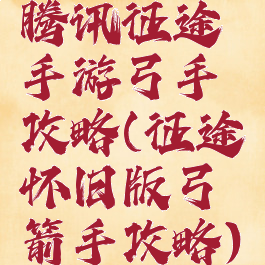 腾讯征途
手游弓手
攻略(征途
怀旧版弓
箭手攻略)